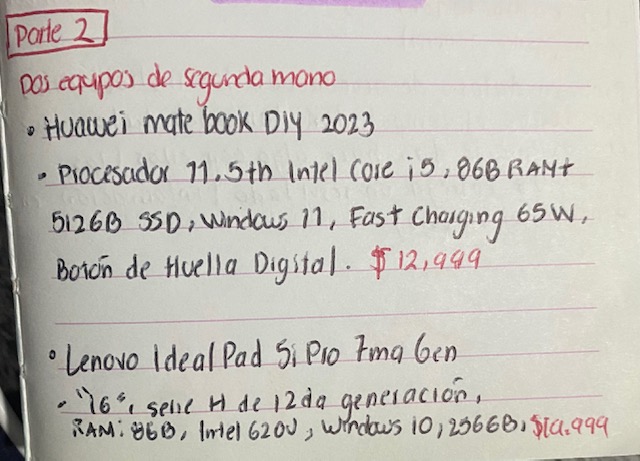 Parte 2
Dos equipos de segunda mano
• Huawei mate book D14 2023
• Procesador 11.5th Intel Core i5, 8GB RAM+
512GB SSD, Windows 11, Fast Charging 65W,
Botón de Huella Digital. $12,999
• Lenovo IdealPad 5i Pro 7ma Gen
• "16", serie H de 12da generación,
RAM: 8GB, Intel 620U, Windows 10, 256GB,